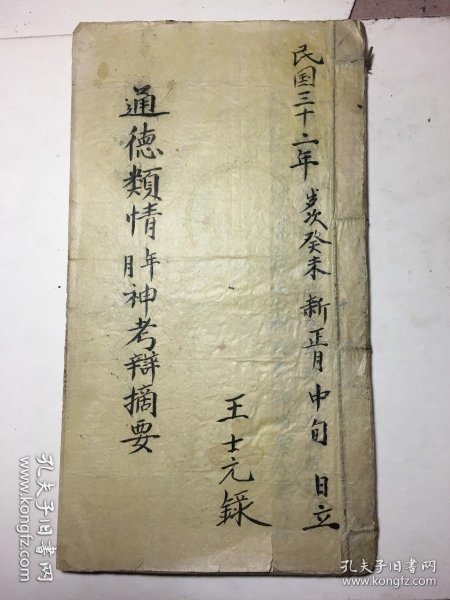 民国三十二年歲次癸未新正月中旬日立
通德類情年月神考辯摘要
王士元錄
孔夫子旧书网
孔夫子旧书网
www.kongfz.com